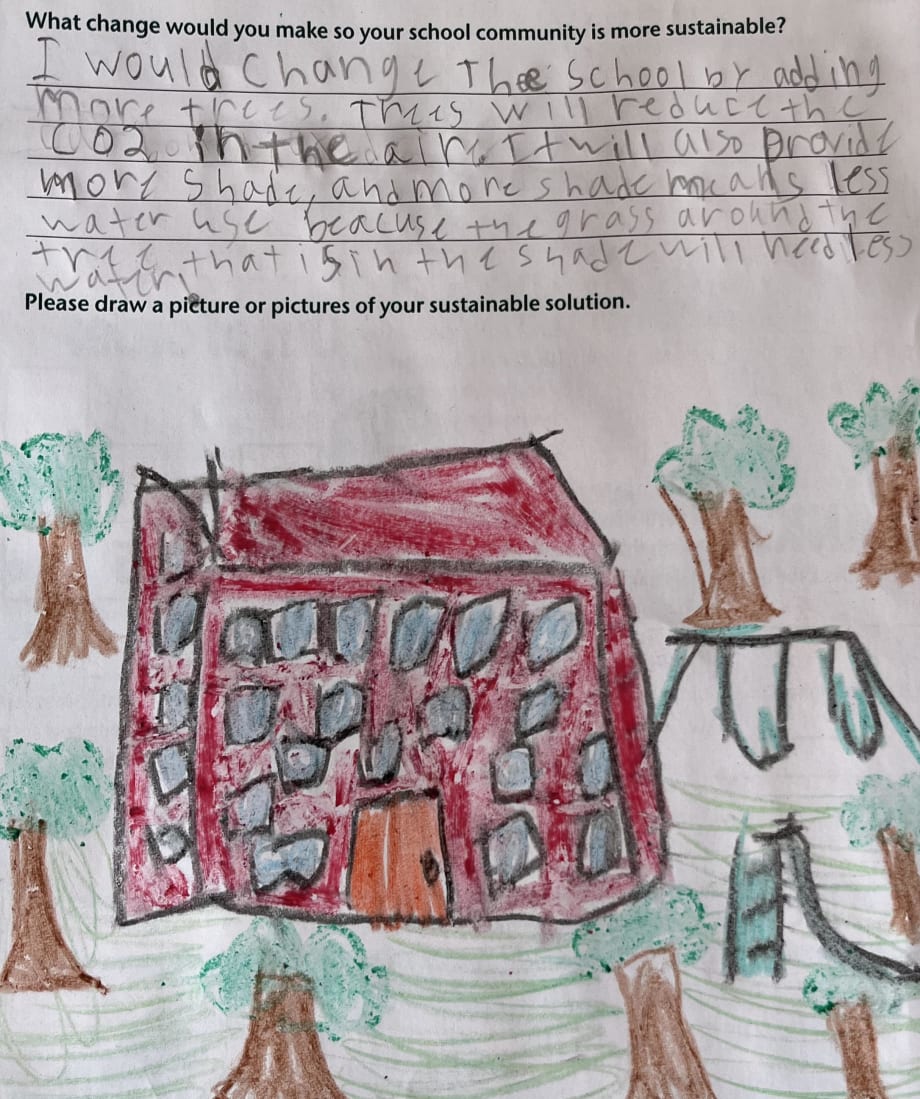 What change would you make so your school community is more sustainable?
I would change Thee school by adding
more trees. Trees will reduce the
CO2 in the air. It will also provide
more shade, and more shade means less
water use beacuse the grass around the
tree that is in the shade will need less
water.
Please draw a picture or pictures of your sustainable solution.